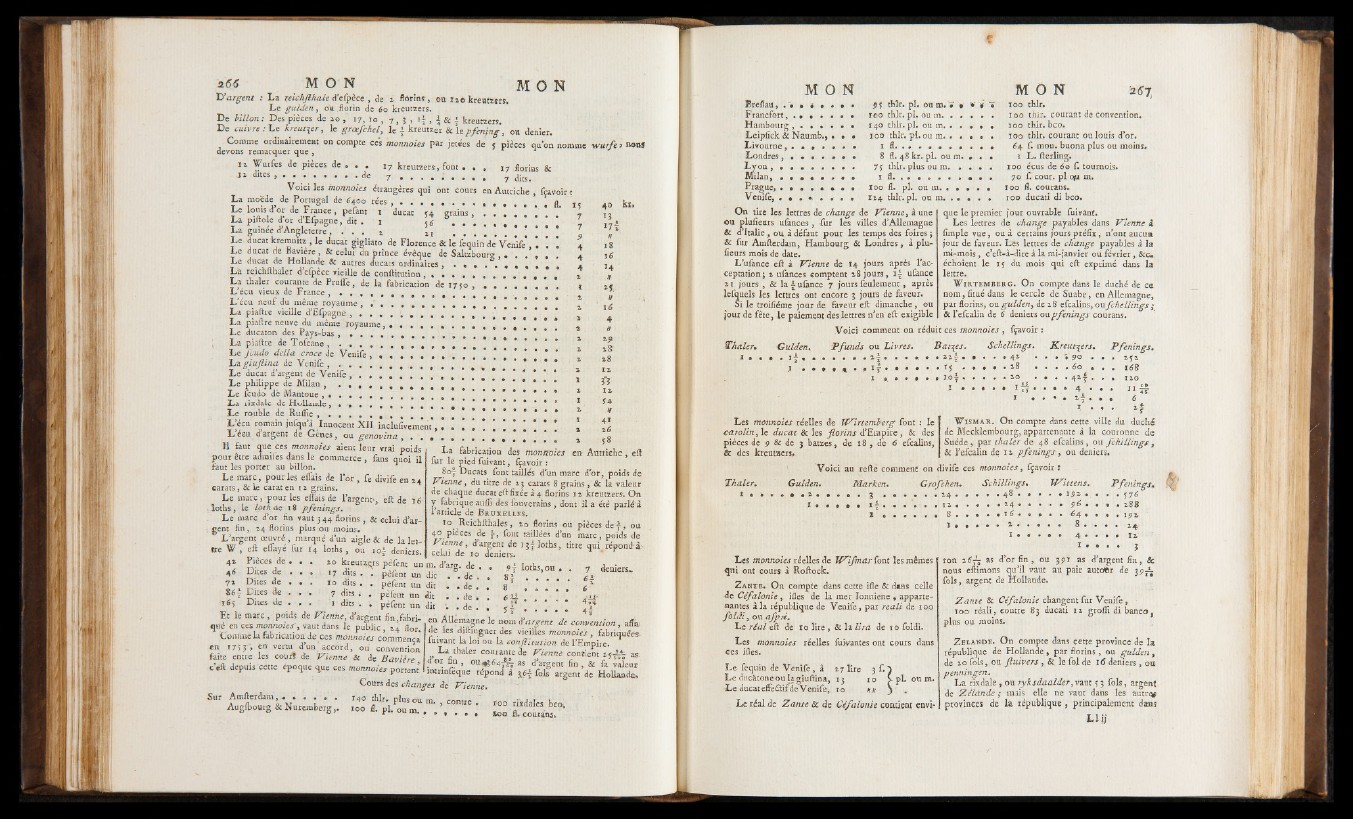 266 MON MON
D'argent : La reichsthale d'espèce, de 2 florins, ou 120 kreutzers.
Le gulden, ou florin de 60 kreutzers.
De billon : Des pièces de 20, 17, 10, 7, 3, 1½, ½ & ¼ kreutzers.
De cuivre : Le kreutzer, le græschel, le ½ kreutzer & le pfening, ou denier.
Comme ordinairement on compte ces monnoies par jetées de 5 pièces qu'on nomme wurfe, nous
devons remarquer que,
12 Wurfes de pièces de . . . 17 kreutzers, font . . . 17 florins &
12 dites, . . . . . . . . de 7 . . . . . . . . . 7 dits.
Voici les monnoies étrangères qui ont cours en Autriche, sçavoir :
La moëde de Portugal de 6400 rées, . . . . . . . fl. 15 40 kr.
Le louis d'or de France, pesant 1 ducat 54 grains, . . . . 7 13
La pistole d'or d'Espagne, dit . 1 56 . . . . 7 17½
La guinée d'Angleterre, . . . . 2 21 . . . . 9 "
Le ducat kremnitz, le ducat gigliato de Florence & le sequin de Venise, . . . 4 18
Le ducat de Bavière, & celui du prince évêque de Saltzbourg, . . . . 4 16
Le ducat de Hollande & autres ducats ordinaires, . . . . 4 14
La reichsthaler d'espèce vieille de constitution, . . . . 2 "
La thaler courante de Prusse, de la fabrication de 1750, . . . . 1 25
L'écu vieux de France, . . . . 2 "
L'écu neuf du même royaume, . . . . 2 16
La piastre vieille d'Espagne, . . . . 2 4
La piastre neuve du même royaume, . . . . 2 "
Le ducaton des Pays-bas, . . . . 2 29
La piastre de Toscane, . . . . 2 28
Le scudo della croce de Venise, . . . . 2 28
La giustina de Venise, . . . . 2 12
Le ducat d'argent de Venise, . . . . 1 33
Le philippe de Milan, . . . . 2 12
Le scudo de Mantoue, . . . . 1 54
La rixdale de Hollande, . . . . 2 "
Le rouble de Russie, . . . . 1 41
L'écu romain jusqu'à Innocent XII inclusivement, . . . . 2 26
L'écu d'argent de Gênes, ou genovina, . . . . 2 58
Il faut que ces monnoies aient leur vrai poids
pour être admises dans le commerce, sans quoi il
faut les porter au billon.
Le marc, pour les essais de l'or, se divise en 24
carats, & le carat en 12 grains.
Le marc, pour les essais de l'argent, est de 16
loths, le loth de 18 pfenings.
Le marc d'or fin vaut 344 florins, & celui d'ar-
gent fin, 24 florins plus ou moins.
L'argent œuvré, marqué d'un aigle & de la let-
tre W, est essayé sur 14 loths, ou 10½ deniers.
La fabrication des monnoies en Autriche, est
sur le pied suivant, sçavoir :
Ducats sont taillés d'un marc d'or, poids de
Vienne, du titre de 23 carats 8 grains, & la valeur
de chaque ducat est fixée à 4 florins 12 kreutzers. On
y fabrique aussi des souverains, dont il a été parlé à
l'article de BRUXELLES.
10 Reichsthales, 20 florins ou pièces de , ou
40 pièces de , sont taillées d'un marc, poids de
Vienne, d'argent de 13⅓ loths, titre qui répond à
celui de 10 deniers.
42 Pièces de . . . 20 kreutzers pèsent un m. d'arg. de . . 9⅓ loths, ou . . 7 deniers.
46 Dites de . . . 17 dits . . pèsent un dit . . de . .
72 Dites de . . . 10 dits . . pèsent un dit . . de . . 8 . . . . . 6
Dites de . . . 7 dits . . pèsent un dit . . de . .
165 Dites de . . . 1 dits . . pèsent un dit . . de . .
Et le marc, poids de Vienne, d'argent fin, fabri-
qué en ces monnoies, vaut dans le public, 24 flor.
Comme la fabrication de ces monnoies commença
en 1753, en vertu d'un accord, ou convention
faite entre les cours de Vienne & de Bavière,
c'est depuis cette époque que ces monnoies portent
en Allemagne le nom d'argent de convention, afin
de les distinguer des vieilles monnoies, fabriquées
suivant la loi ou la constitution de l'Empire.
La thaler courante de Vienne contient as
d'or fin, ou as d'argent fin, & sa valeur
intrinséque répond à 36½ sols argent de Hollande.
Cours des changes de Vienne.
Sur Amsterdam, . . . . . . 140 thlr. plus ou m., contre . 100 rixdales bco.
Augsbourg & Nuremberg, . 100 fl. pl. ou m. . . . . . . 100 fl. courans.
MON MON 267
Breslau, . . . . . . . 95 thlr. pl. ou m. . . . . . 100 thlr.
Francfort, . . . . . . . 100 thlr. pl. ou m. . . . . . 100 thlr. courant de convention.
Hambourg, . . . . . . 140 thlr. pl. ou m. . . . . . 100 thlr. bco.
Leipsick & Naumb., . . . 100 thlr. pl. ou m. . . . . . 100 thlr. courant ou louis d'or.
Livourne, . . . . . . . 1 fl. . . . . . . . . . 64 s. mou. buona plus ou moins.
Londres, . . . . . . . 8 fl. 48 kr. pl. ou m. . . . 1 L. sterling.
Lyon, . . . . . . . . 75 thlr. plus ou m. . . . . 100 écus de 60 s. tournois.
Milan, . . . . . . . . 1 fl. . . . . . . . . . 70 s. cour. pl ou m.
Prague, . . . . . . . . 100 fl. pl. ou m. . . . . . 100 fl. courans.
Venise, . . . . . . . . 114 thlr. pl. ou m. . . . . . 100 ducati di bco.
On tire les lettres de change de Vienne, à une
ou plusieurs usances, sur les villes d'Allemagne
& d'Italie, ou à défaut pour les temps des foires ;
& sur Amsterdam, Hambourg & Londres, à plu-
sieurs mois de date.
L'usance est à Vienne de 14 jours après l'ac-
ceptation ; 2 usances comptent 28 jours, 1½ usance
21 jours, & la ½ usance 7 jours seulement, après
lesquels les lettres ont encore 3 jours de faveur.
Si le troisième jour de faveur est dimanche, ou
jour de fête, le paiement des lettres n'en est exigible
que le premier jour ouvrable suivant.
Les lettres de change payables dans Vienne à
simple vue, ou à certains jours préfix, n'ont aucun
jour de faveur. Les lettres de change payables à la
mi-mois, c'est-à-dire à la mi-janvier ou février, &c.
échoient le 15 du mois qui est exprimé dans la
lettre.
WIRTEMBERG. On compte dans le duché de ce
nom, situé dans le cercle de Suabe, en Allemagne,
par florins, ou gulden, de 28 escalins, ou schellings ;
& l'escalin de 6 deniers ou pfenings courans.
Voici comment on réduit ces monnoies, sçavoir :
Thaler. Gulden. Pfunds ou Livres. Batzes. Schellings. Kreutzers. Pfenings.
1 . . . . 1½ . . . . . . 2¼ . . . . . 22½ . . . . . 42 . . . . 90 . . . 252
1 . . . . . . 1½ . . . . . 15 . . . . . 28 . . . . 60 . . . 168
1 . . . . . 10 . . . . . 20 . . . . 42 . . . 120
1 . . . . . 1 . . . . 4 . . . 11
1 . . . . 2 . . . 6
1 . . . 2
Les monnoies réelles de Wirtemberg sont : le
carolin, le ducat & les florins d'Empire, & des
pièces de 9 & de 3 batzes, de 18, de 6 escalins,
& des kreutzers.
WISMAR. On compte dans cette ville du duché
de Mecklembourg, appartenante à la couronne de
Suède, par thaler de 48 escalins, ou schillings,
& l'escalin de 12 pfenings, ou deniers.
Voici au reste comment on divise ces monnoies, sçavoir :
Thaler. Gulden. Marken. Groschen. Schillings. Wittens. Pfenings.
1 . . . . . . 2 . . . . . 3 . . . . . . 24 . . . . . 48 . . . . . 192 . . . . . 576
1 . . . . . 1½ . . . . . . 12 . . . . . 24 . . . . . 96 . . . . 288
1 . . . . . . 8 . . . . . 16 . . . . . 64 . . . . 192
1 . . . . . 2 . . . . . 8 . . . . 24
1 . . . . . 4 . . . . 12
1 . . . . 3
Les monnoies réelles de Wismar sont les mêmes
qui ont cours à Rostock.
ZANTE. On compte dans cette isle & dans celle
de Céfalonie, isles de la mer Ionniene, apparte-
nantes à la république de Venise, par reali de 100
soldi, ou aspri.
Le réal est de 10 lire, & la lira de 10 soldi.
Les monnoies réelles suivantes ont cours dans
ces isles.
Le sequin de Venise, à 27 lire 3 s.
Le ducatone ou la giustina, 13 10 } pl. ou m.
Le ducat effectif de Venise, 10 "
Le réal de Zante & de Céfalonie contient envi-
ron as d'or fin, ou 391 as d'argent fin, &
nous estimons qu'il vaut au pair autour de
sols, argent de Hollande.
Zante & Céfalonie changent sur Venise,
100 réali, contre 83 ducati 12 grossi di banco,
plus ou moins.
ZELANDE. On compte dans cette province de la
république de Hollande, par florins, ou gulden,
de 20 sols, ou stuivers, & le sol de 16 deniers, ou
penningen.
La rixdale, ou ryksdaalder, vaut 52 sols, argent
de Zélande ; mais elle ne vaut dans les autres
provinces de la république, principalement dans
L l ij